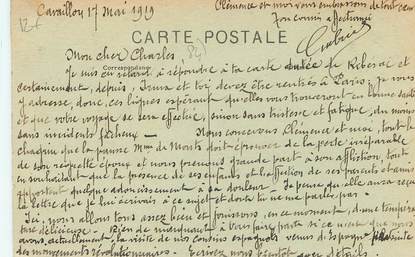 Cavaillon 17 Mai 1919
Clémence et moi vous embrassons de tout cœur
Ton cousin affectionné
Gabriel
CARTE POSTALE
Mon cher Charles,
Correspondance
Je suis en retard à répondre à ta carte datée de Ribérac et
certainement, depuis, Irma et toi devez être rentrés à Paris; je vous
y adresse, donc, ces lignes espérant qu'elles vous trouveront en bonne santé
et que votre voyage se sera effectué, sinon sans tristesse et fatigue, du moins
sans incidents fâcheux — Nous concevons Clémence et moi, tout le
chagrin que la pauvre Mme de Monts doit éprouver de la perte irréparable
de son regretté époux et nous prenons grande part à son affliction, tout
en souhaitant que la présence de ses enfants et l'affection de ses parents et amis
apportent quelque adoucissement à sa douleur — Je pense qu'elle aura reçu
la lettre que je lui écrivais à ce sujet et dont tu ne me parles pas —
Ici, nous allons tous assez bien et jouissons, en ce moment, d'une tempéra
ture délicieuse — Rien de marquant à vous faire part si ce n'est que nous
avons, actuellement, la visite de nos cousins espagnols venus d'Espagne
des mouvements révolutionnaires. Écrivez nous bientôt avec détails